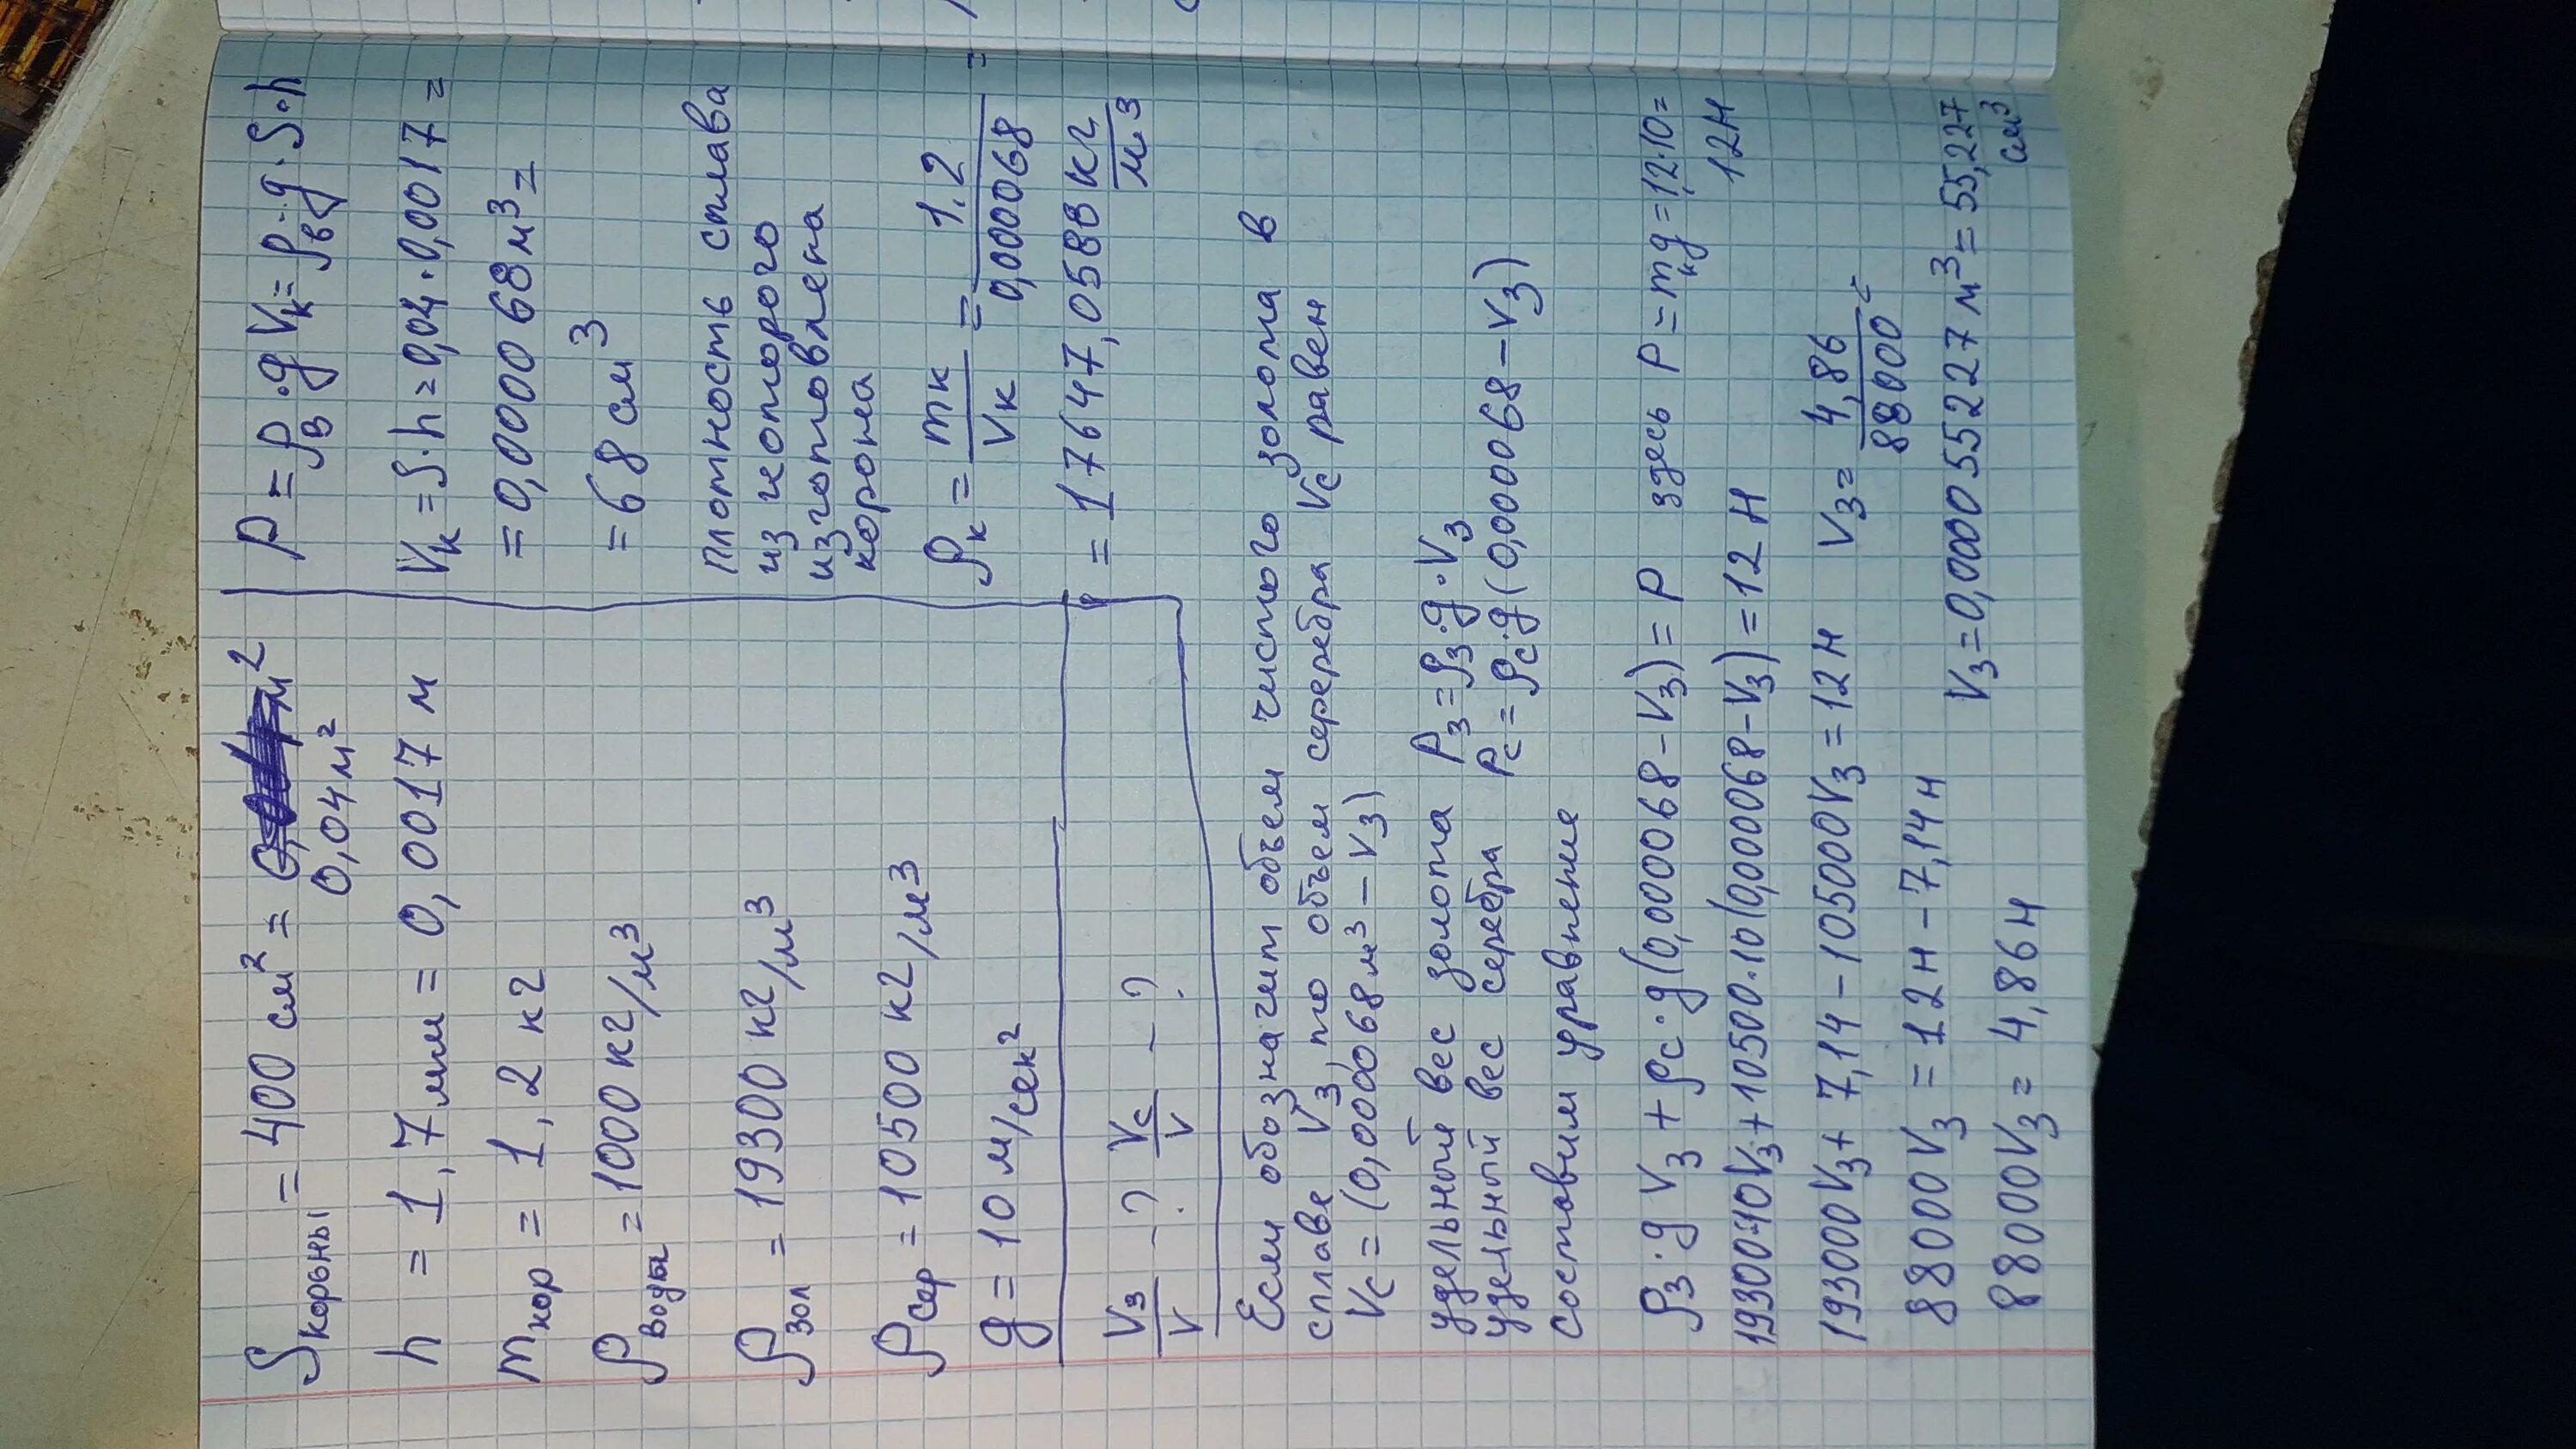 Sкороны = 400 см² = м²
0,04 м²
h = 1,7 мм = 0,0017 м
mкор = 1,2 кг
ρводы = 1000 кг/м³
ρзол = 19300 кг/м³
ρсер = 10500 кг/м³
g = 10 м/сек²
Vз/V - ? Vс/V - ?
P = ρв·g Vк = ρв·g·S·h
Vк = S·h = 0,04·0,0017 =
= 0,000068 м³ =
= 68 см³
плотность сплава
из которого
изготовлена
корона
ρк = mк/Vк = 1,2/0,000068 =
= 17647,0588 кг/м³
Если обозначит объем чистого золота в
сплаве Vз, то объем серебра Vс равен
Vс = (0,000068 м³ - Vз)
удельный вес золота Pз = ρз·g·Vз
удельный вес серебра Pс = ρс·g(0,000068 - Vз)
составим уравнение
ρз·g Vз + ρс·g(0,000068 - Vз) = P здесь P = mкg = 1,2·10 = 12 Н
19300·10Vз + 10500·10(0,000068 - Vз) = 12 Н
193000Vз + 7,14 - 105000Vз = 12 Н Vз = 4,86/88000 =
88000Vз = 12 Н - 7,14 Н
88000Vз = 4,86 Н Vз = 0,000055227 м³ = 55,227 см³